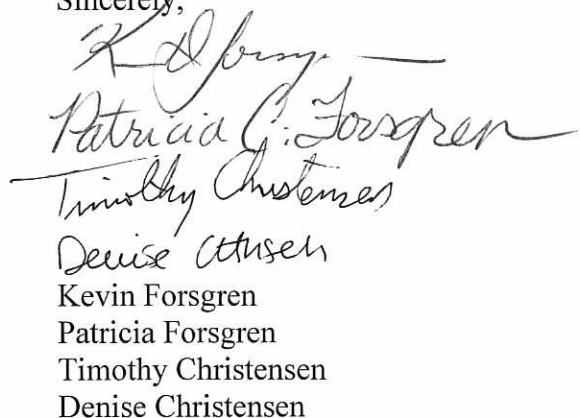 Sincerely,
K D Forsgren
Patricia C. Forsgren
Timothy Christensen
Denise
Kevin Forsgren
Patricia Forsgren
Timothy Christensen
Denise Christensen